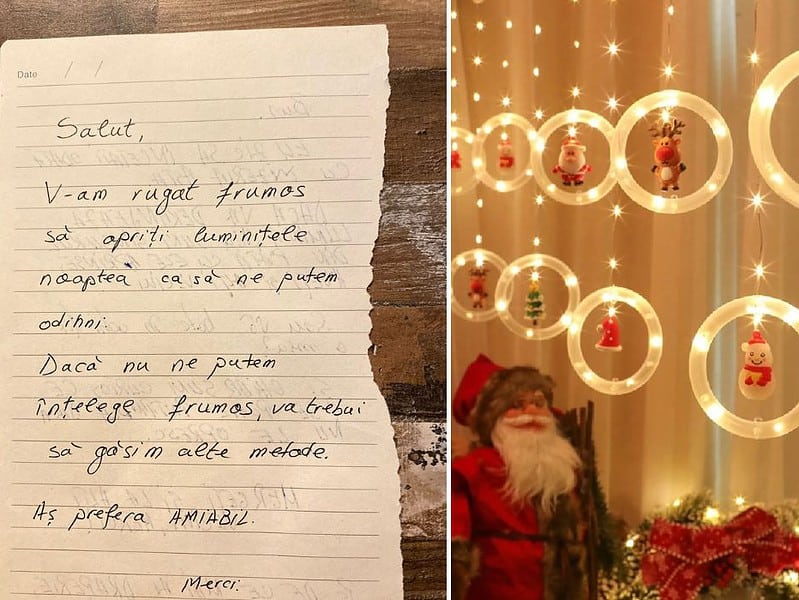 Date / /
Salut,
V-am rugat frumos
să opriți luminițele
noaptea ca să ne putem
odihni.
Dacă nu ne putem
înțelege frumos, va trebui
să găsim alte metode.
Aș prefera AMIABIL.
Merci.